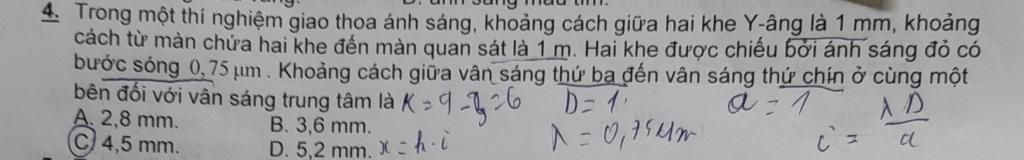 4. Trong một thí nghiệm giao thoa ánh sáng, khoảng cách giữa hai khe Y-âng là 1 mm, khoảng
cách từ màn chứa hai khe đến màn quan sát là 1 m. Hai khe được chiếu bởi ánh sáng đỏ có
bước sóng 0,75 μm. Khoảng cách giữa vân sáng thứ ba đến vân sáng thứ chín ở cùng một
bên đối với vân sáng trung tâm là K = 9 - 3 = 6 D = 1. a = 1
A. 2,8 mm. B. 3,6 mm. λ = 0,75 μm i = λD/a
C. 4,5 mm. D. 5,2 mm. x = k.i